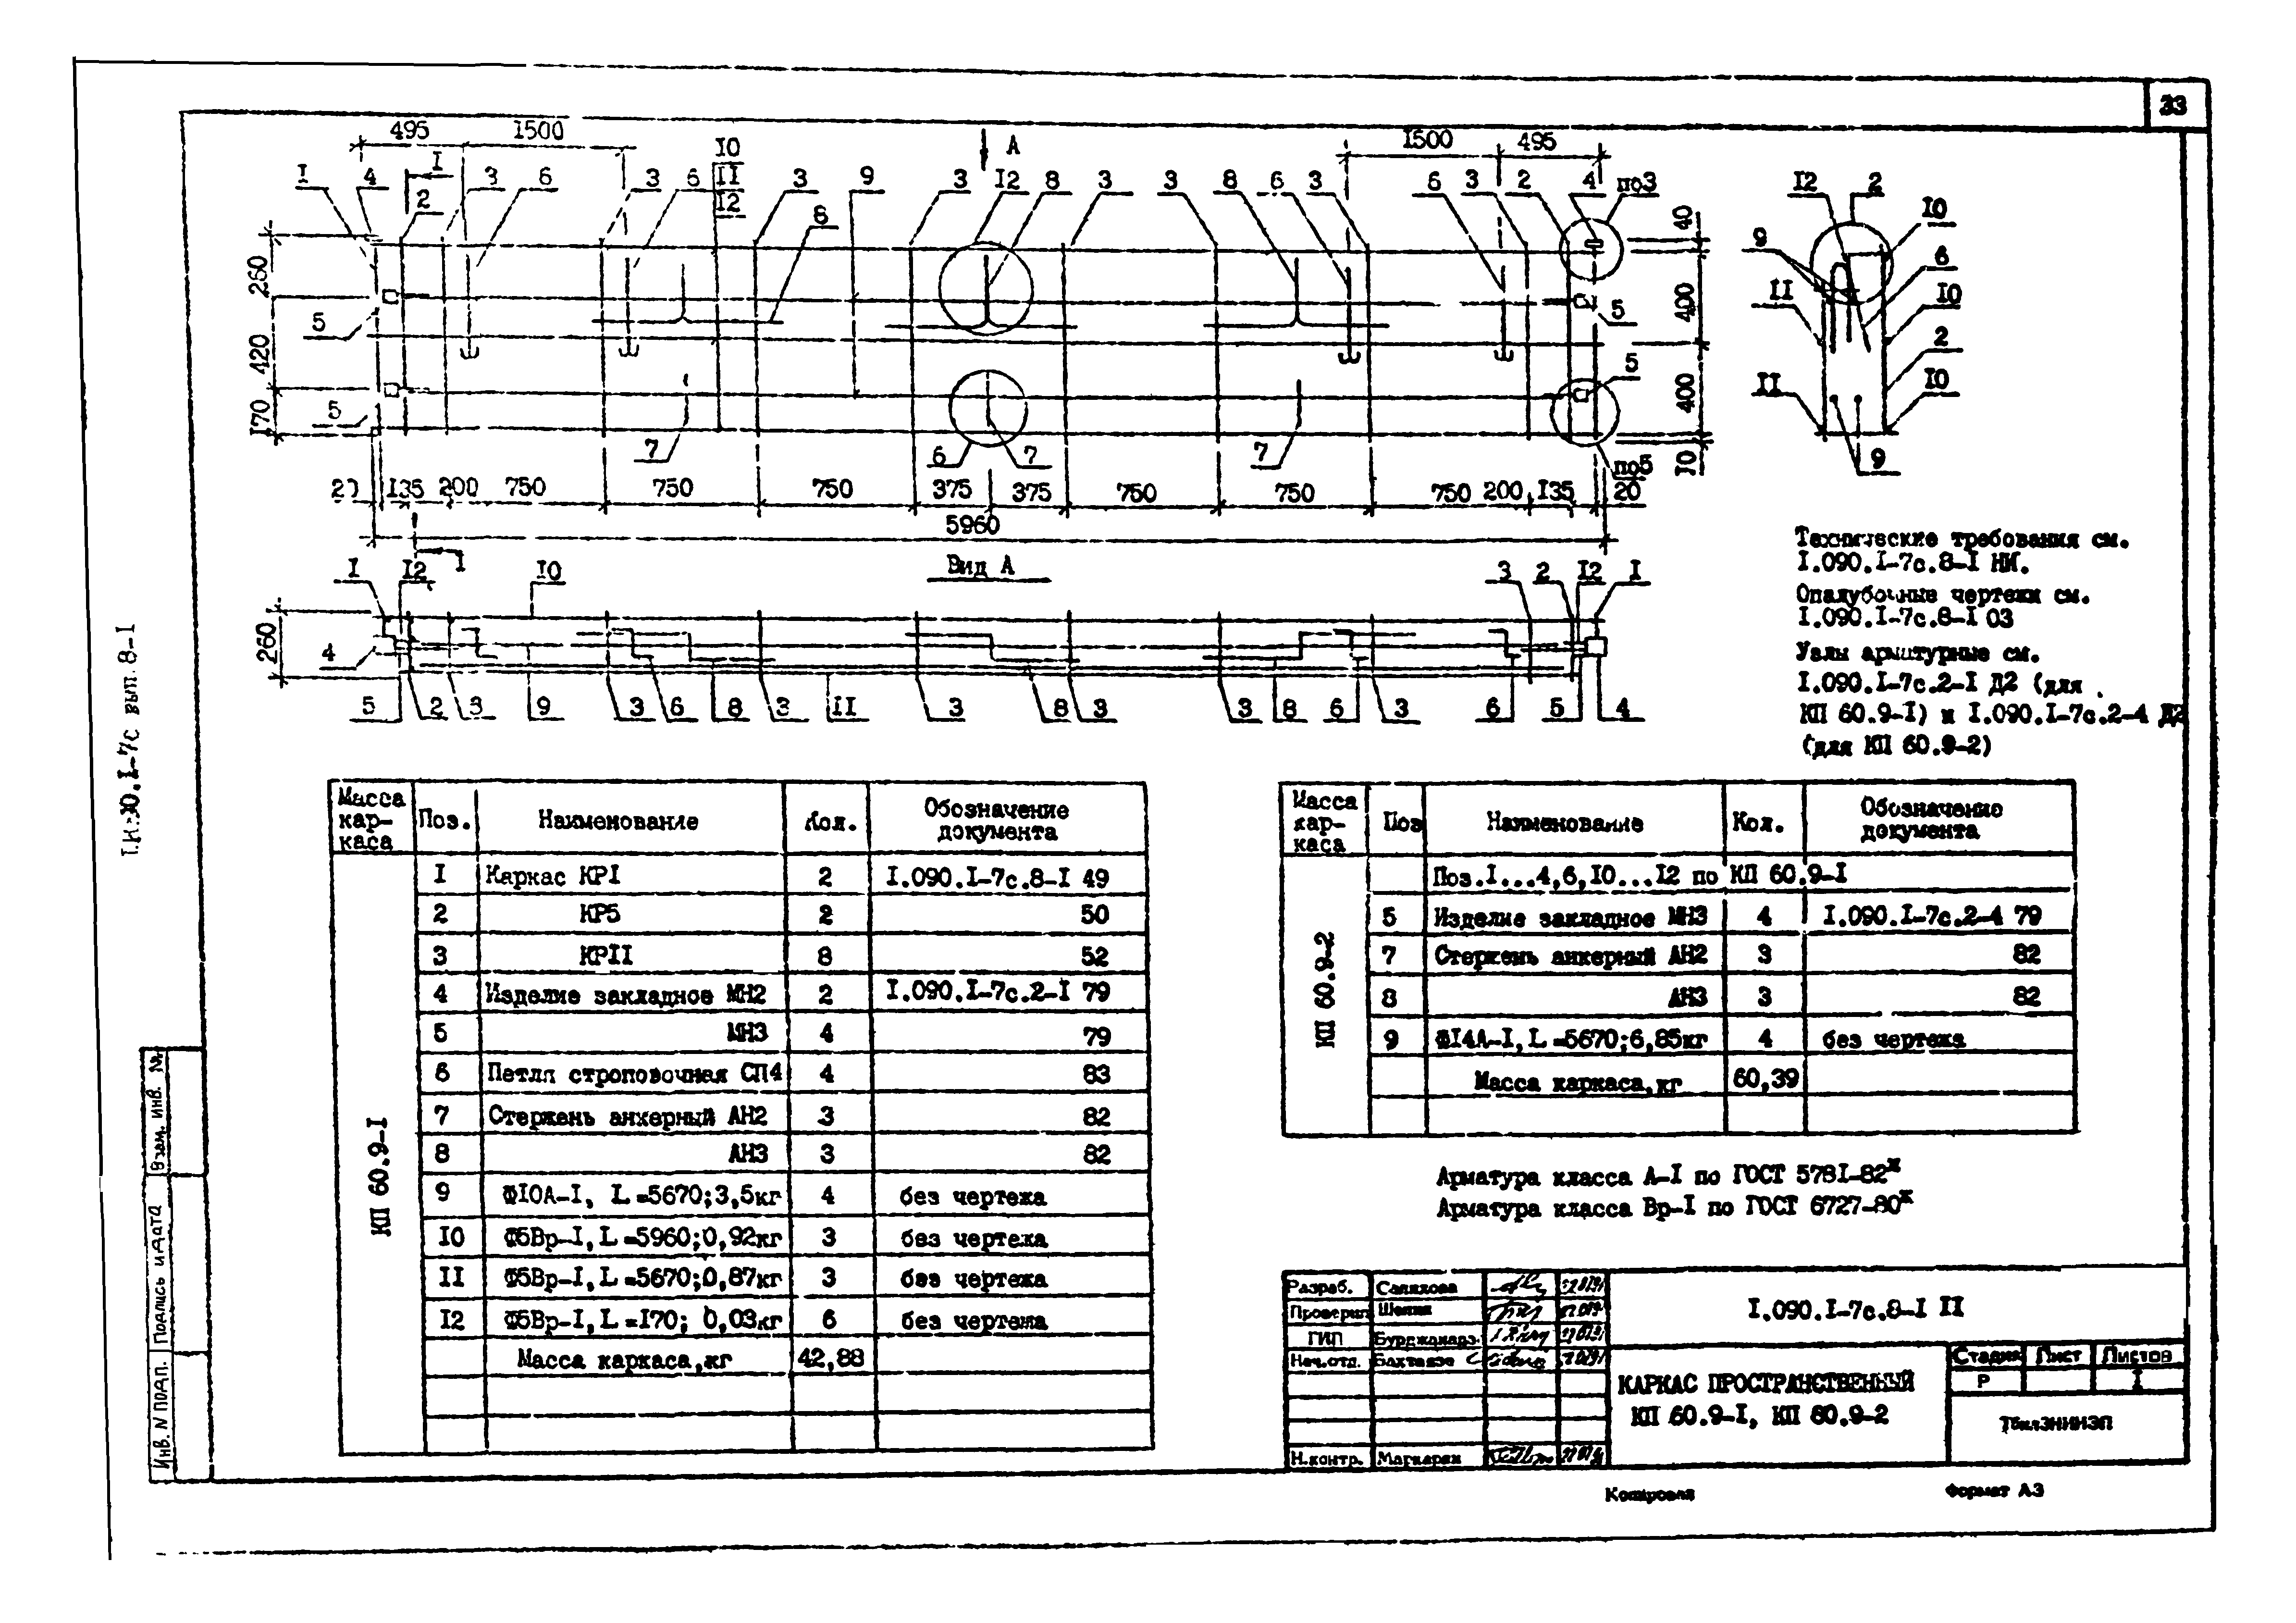 33
495 1500 10 11 12 А 1500 495
1 4 1 2 3 6 3 6 3 9 3 12 8 3 3 8 6 3 6 3 2 4 по3
8
260 420 170
5 5
40 400 400 10
5 5
7 6 7 7 по5
12 2 10 9 6 10 11 2 11 10 9
20 135 200 750 750 750 375 375 750 750 750 200 135 20
5960
1 12 1 10 Вид А 3 2 12 1
260 4
5 2 3 9 3 6 8 3 11 3 8 3 3 8 6 3 6 5 4
Технические требования см.
1.090.1-7с.8-1 НИ.
Опалубочные чертежи см.
1.090.1-7с.8-1 03
Узлы арматурные см.
1.090.1-7с.2-1 Д2 (для
КП 60.9-1) и 1.090.1-7с.2-4 Д2
(для КП 60.9-2)
вып. 8-1
Масса каркаса Поз. Наименование Кол. Обозначение документа
КП 60.9-1
1 Каркас КР1 2 1.090.1-7с.8-1 49
2 КР5 2 50
3 КР11 8 52
4 Изделие закладное МН2 2 1.090.1-7с.2-1 79
5 МН3 4 79
6 Петля строповочная СП4 4 83
7 Стержень анкерный АН2 3 82
8 АН3 3 82
9 Ф10А-1, L=5670;3,5кг 4 без чертежа
10 Ф5Вр-1, L=5960;0,92кг 3 без чертежа
11 Ф5Вр-1, L=5670;0,87кг 3 без чертежа
12 Ф5Вр-1, L=170; 0,03кг 6 без чертежа
Масса каркаса,кг 42,88
Масса каркаса Поз Наименование Кол. Обозначение документа
КП 60.9-2
Поз.1...4,6,10...12 по КП 60.9-1
5 Изделие закладное МН3 4 1.090.1-7с.2-4 79
7 Стержень анкерный АН2 3 82
8 АН3 3 82
9 Ф14А-1, L=5670;6,85кг 4 без чертежа
Масса каркаса,кг 60,39
Арматура класса А-1 по ГОСТ 5781-82ж
Арматура класса Вр-1 по ГОСТ 6727-80ж
Разраб. Салахова
Проверил
ГИП
Нач.отд.
Н.контр. Маркарян
1.090.1-7с.8-1 11
КАРКАС ПРОСТРАНСТВЕННЫЙ
КП 60.9-1, КП 60.9-2
Стадия Лист Листов
Р 1
ТбилЗНИИЭП
Инв. N подл. Подпись и дата Взам. инв. №
Копировал Формат А3